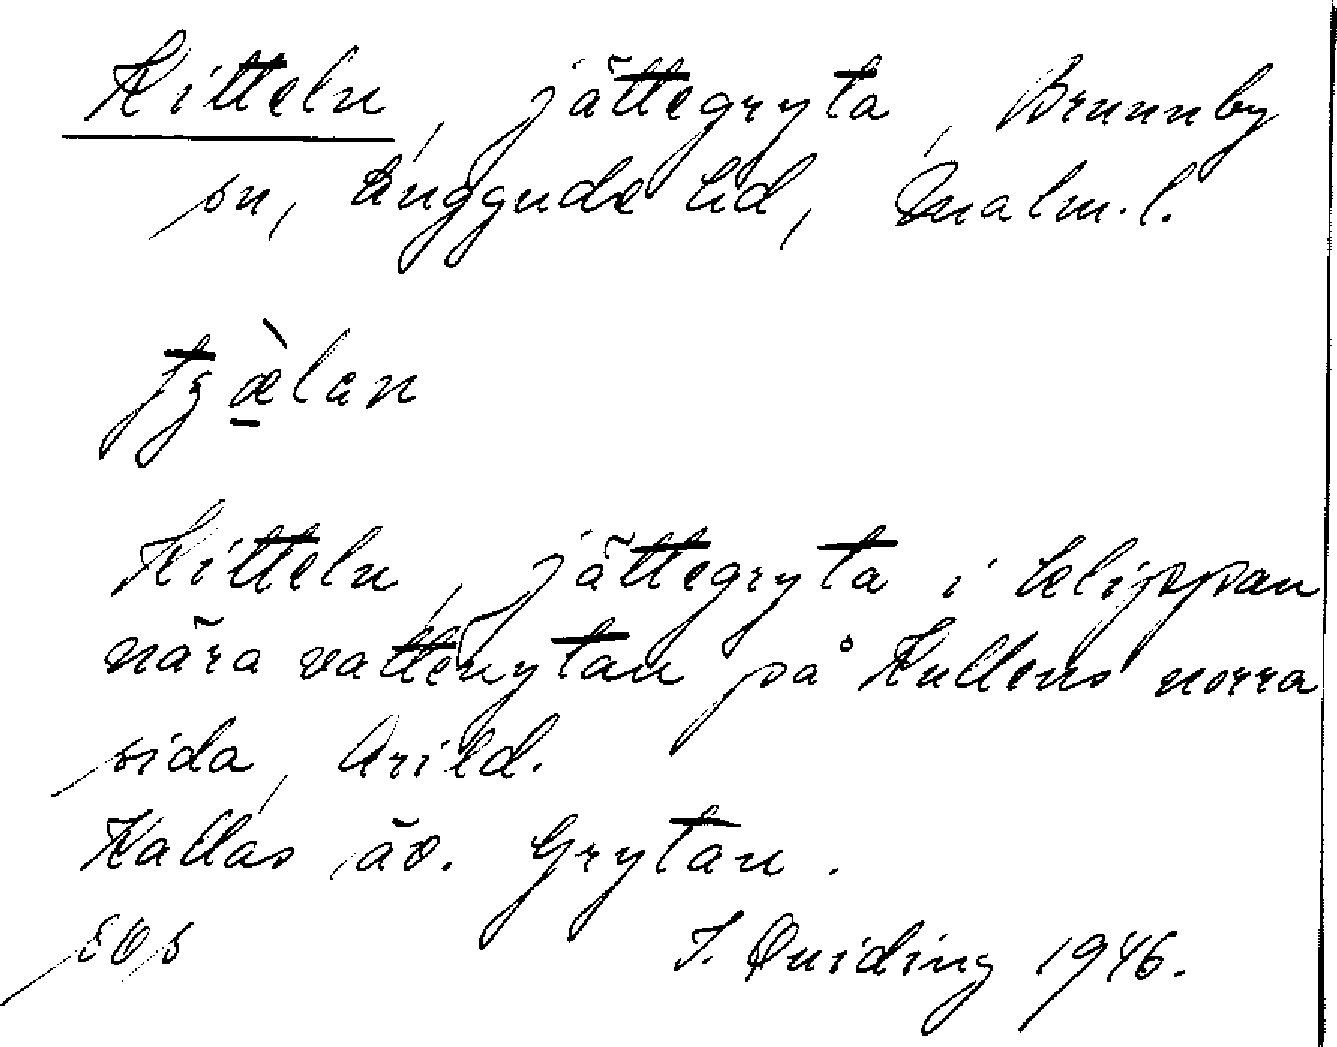 Kitteln, jättegryta, Brunnby
sn, Luggude hd, Malm.l.
Kitteln, jättegryta i klippan
nära vattenytan på Kullens norra
sida, Arild.
Kallas äv. Grytan.
J. Quiding 1946.